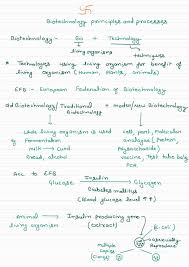 Biotechnology principles and processes
Biotechnology - Bio + Technology
living organisms techniques
* Technologies using living organism for benefit of
living organism (Human, Plants, animals)
EFB - European Federation of Biotechnology
Old Biotechnology/Traditional + modern/New Biotechnology
Biotechnology
Whole living organism is used
eg Fermentation
milk → Curd
Bread, alcohol
Cell, part, molecule
enzymes (Protein,
Polysaccharide)
vaccine, Test tube baby
PCR.
Acc to EFB
Glucose Insulin → Glycogen
Diabetes mellitus
(Blood glucose level ↑↑)
Animal → Insulin Producing gene
living organism (extract)
Multiple
Copies